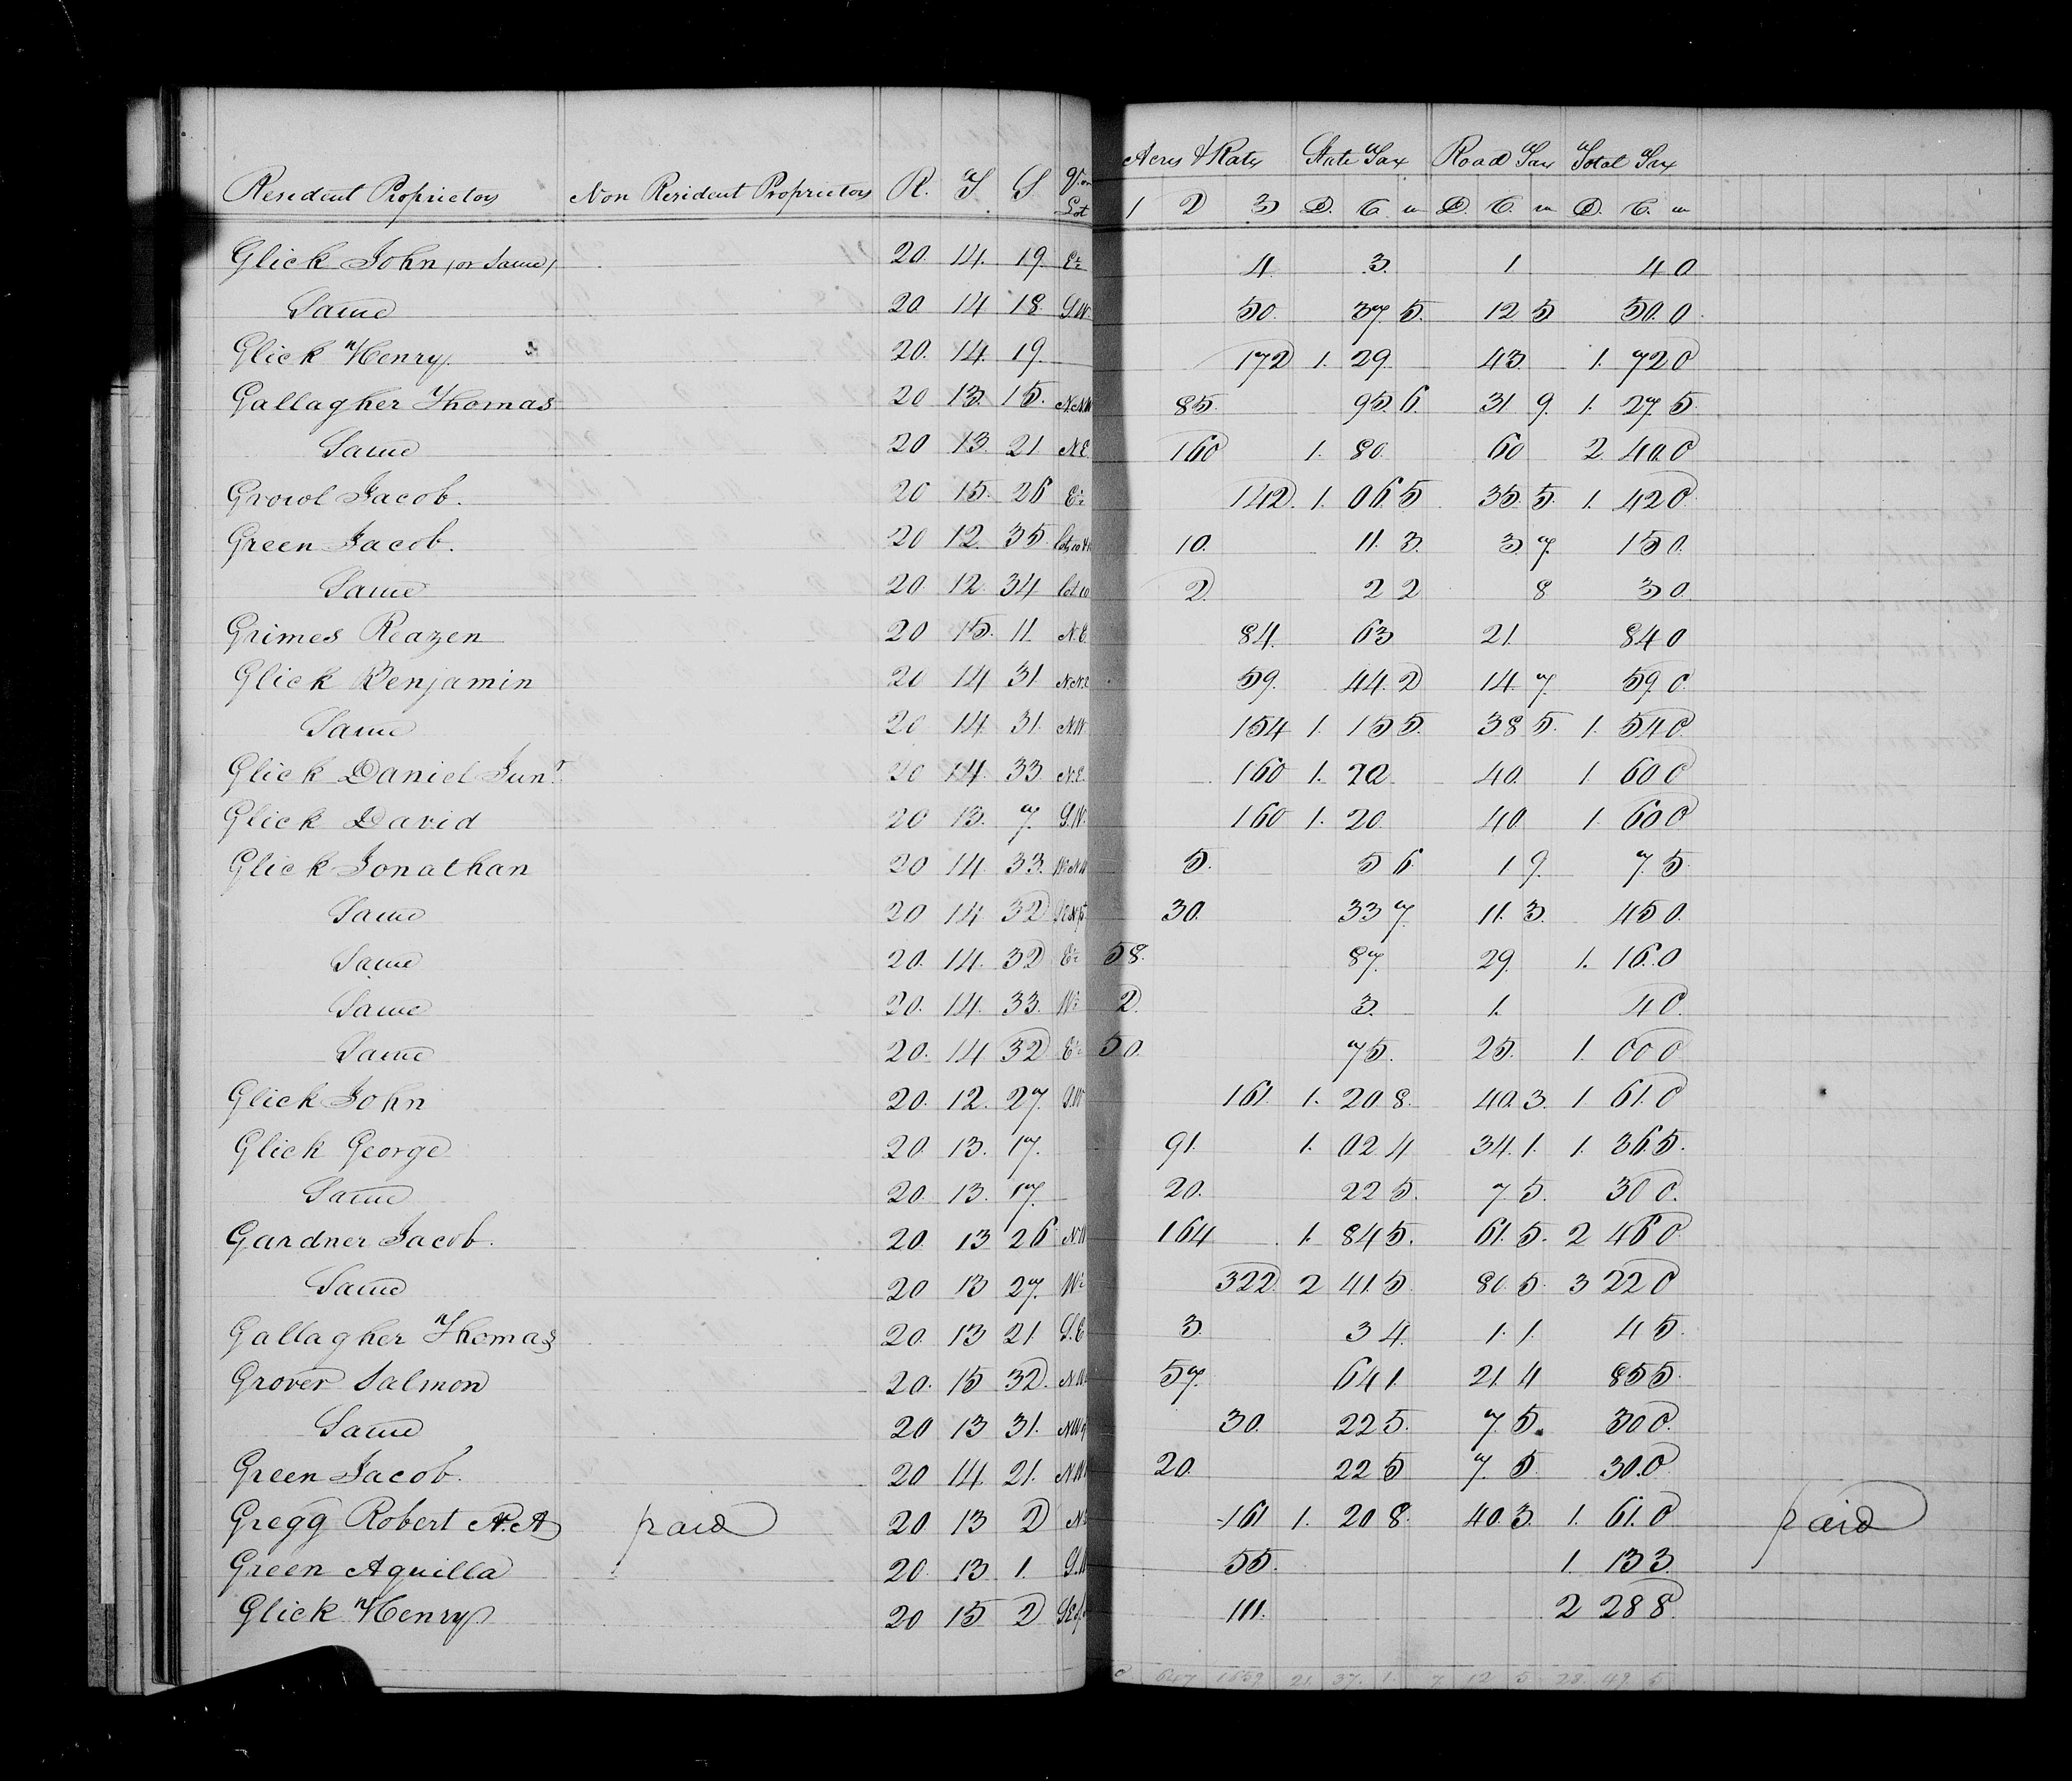 Resident Proprietors Non Resident Proprietors R. T. S. Qr. or Lot Acres & Rate State Tax Road Tax Total Tax
1 2 3 D. C. m D. C. m D. C. m
Glick John (or Same) 20. 14. 19. E½ 4 3. 1 4 0
Same 20. 14 18. S.W. 50. 37. 5. 12 5 50. 0
Glick Henry. 20. 14. 19. 172 1. 29. 43 1. 72 0
Gallagher Thomas 20 13. 15. N.N.W 85. 95. 6. 31 9. 1. 27. 5.
Same 20 13. 21 N.E. 160 1. 80. 60 2. 40. 0
Growl Jacob. 20 15. 26 E½ 142. 1. 06 5 35. 5. 1. 42 0.
Green Jacob. 20 12. 35. 10. 11. 3. 3 7. 15 0.
Same 20. 12. 34 lot 10 2. 2 2 8 3 0.
Grimes Reazen 20 15. 11 N.E. 84. 63 21. 84 0
Glick Benjamin 20 14 31. N.N.E 59. 44. 2 14. 7. 59 0.
Same 20 14. 31. N.W 154 1. 15 5. 38 5. 1. 54 0.
Glick Daniel Junr. 20 14. 33 N.E. 160 1. 20 40. 1 60 0
Glick David 20 13. 7. S.W. 160 1. 20. 40. 1. 60 0
Glick Jonathan 20 14. 33. 5. 5 6 1 9. 7. 5.
Same 20 14 32 30. 33 7. 11. 3. 45 0.
Same 20. 14. 32 E½ 58. 87. 29. 1. 16. 0
Same 20. 14. 33. W½ 2. 3. 1. 4 0.
Same 20. 14 32 E½ 50. 75. 25. 1. 00 0
Glick John 20. 12. 27. S.W 161 1. 20 8. 40. 3. 1 61. 0
Glick George 20. 13. 17. 91. 1. 02 4 34. 1. 1. 36. 5.
Same 20. 13. 17. 20. 22 5. 7 5. 30 0.
Gardner Jacob. 20. 13 26 N.W 164 1. 84 5. 61. 5. 2 46 0
Same 20 13 27. W½ 322. 2 41. 5 80. 5. 3 22 0
Gallagher Thomas 20. 13 21. S.E 3. 3 4. 1. 1. 4 5.
Grover Salmon 20. 15 32. N.W 57. 64 1. 21. 4 85 5.
Same 20 13 31. 30. 22 5. 7. 5. 30 0.
Green Jacob. 20 14. 21. N.W 20. 22 5 7. 5. 30. 0
Gregg Robert A. A paid 20. 13 2 161 1. 20 8. 40. 3. 1. 61. 0 paid
Green Aquilla 20. 13 1. 55. 1. 13 3.
Glick Henry 20 15 2 111. 2 28 8.
647 1659 21. 37. 1. 7 12 5 28. 49. 5